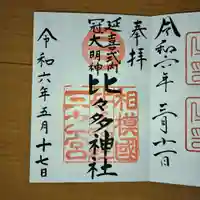 奉拝
延喜式内
冠大明神
比々多神社
相模國
三之宮
令和六年五月十七日
令和六年三月十一日